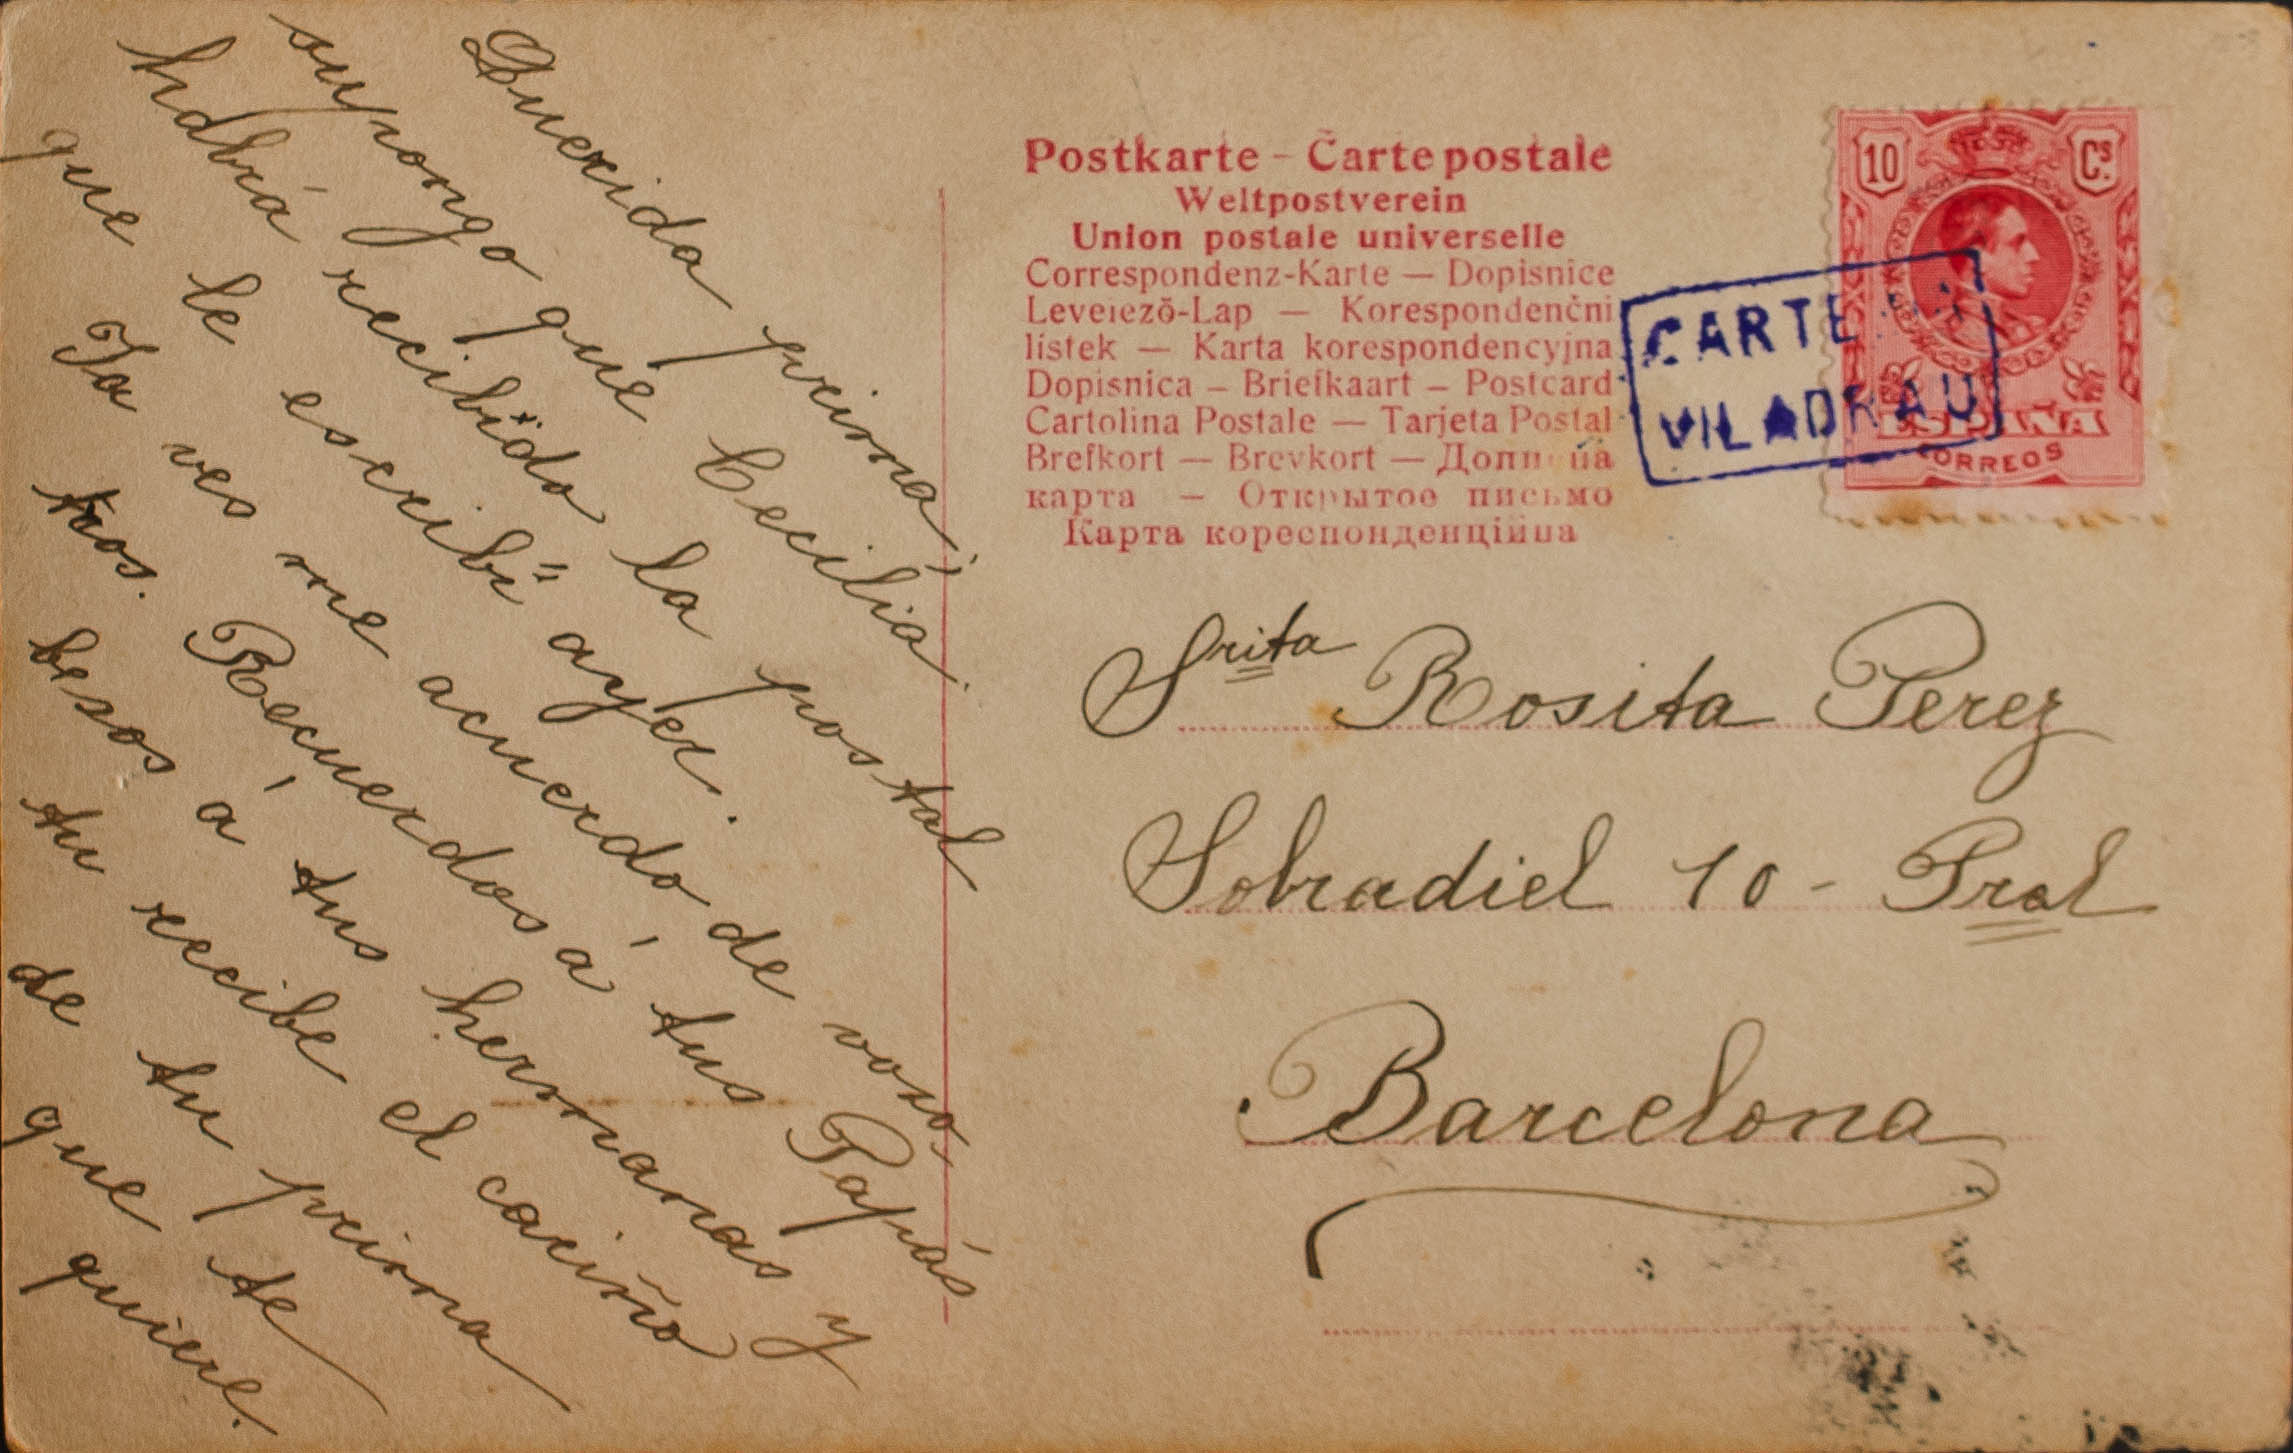 Querida prima;
supongo que Cecilia
habrá recibido la postal
que le escribí ayer.
Ya ves me acuerdo de voso-
tros. Recuerdos á tus Papás
besos á tus hermanas y
tu recibe el cariño
de tu prima
que te
quiere.
Postkarte - Carte postale
Weltpostverein
Union postale universelle
Correspondenz-Karte — Dopisnice
Levelező-Lap — Korespondenční
lístek — Karta korespondencyjna
Dopisnica — Briefkaart — Postcard
Cartolina Postale — Tarjeta Postal
Brefkort — Brevkort —
карта — Открытое письмо
Карта кореспонденційна
10 Cs.
ESPAÑA
CORREOS
VILADRAU
Srita Rosita Perez
Sobradiel 10 - Pral
Barcelona